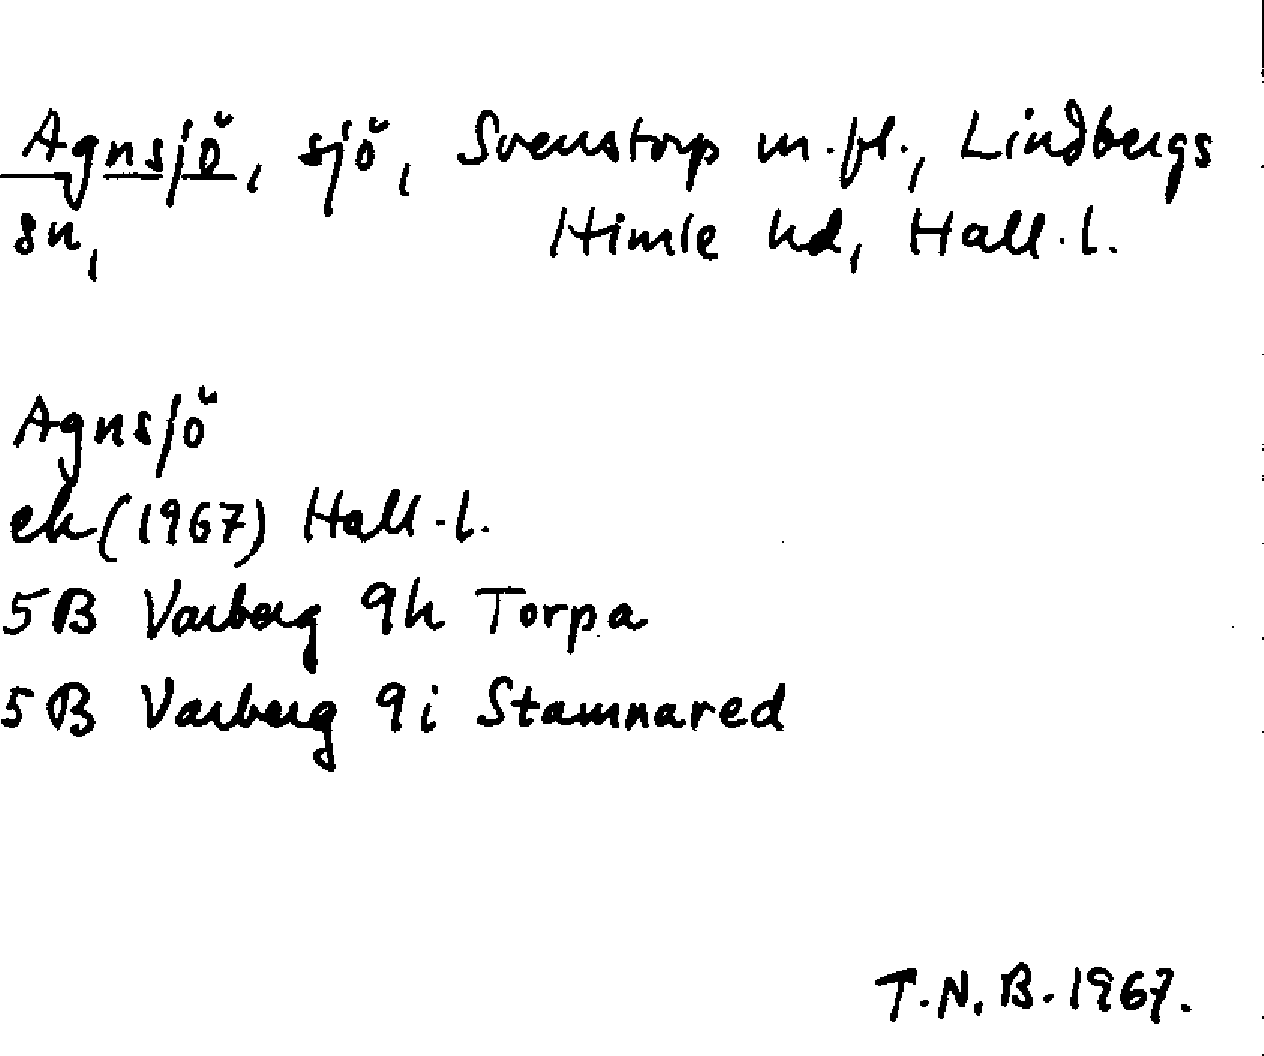 Agnsjö, sjö, Svenstorp m.fl., Lindbergs
sn, Himle hd, Hall.l.
Agnsjö
ek (1967) Hall.l.
5B Varberg 9h Torpa
5B Varberg 9i Stamnared
T.N.B. 1967.